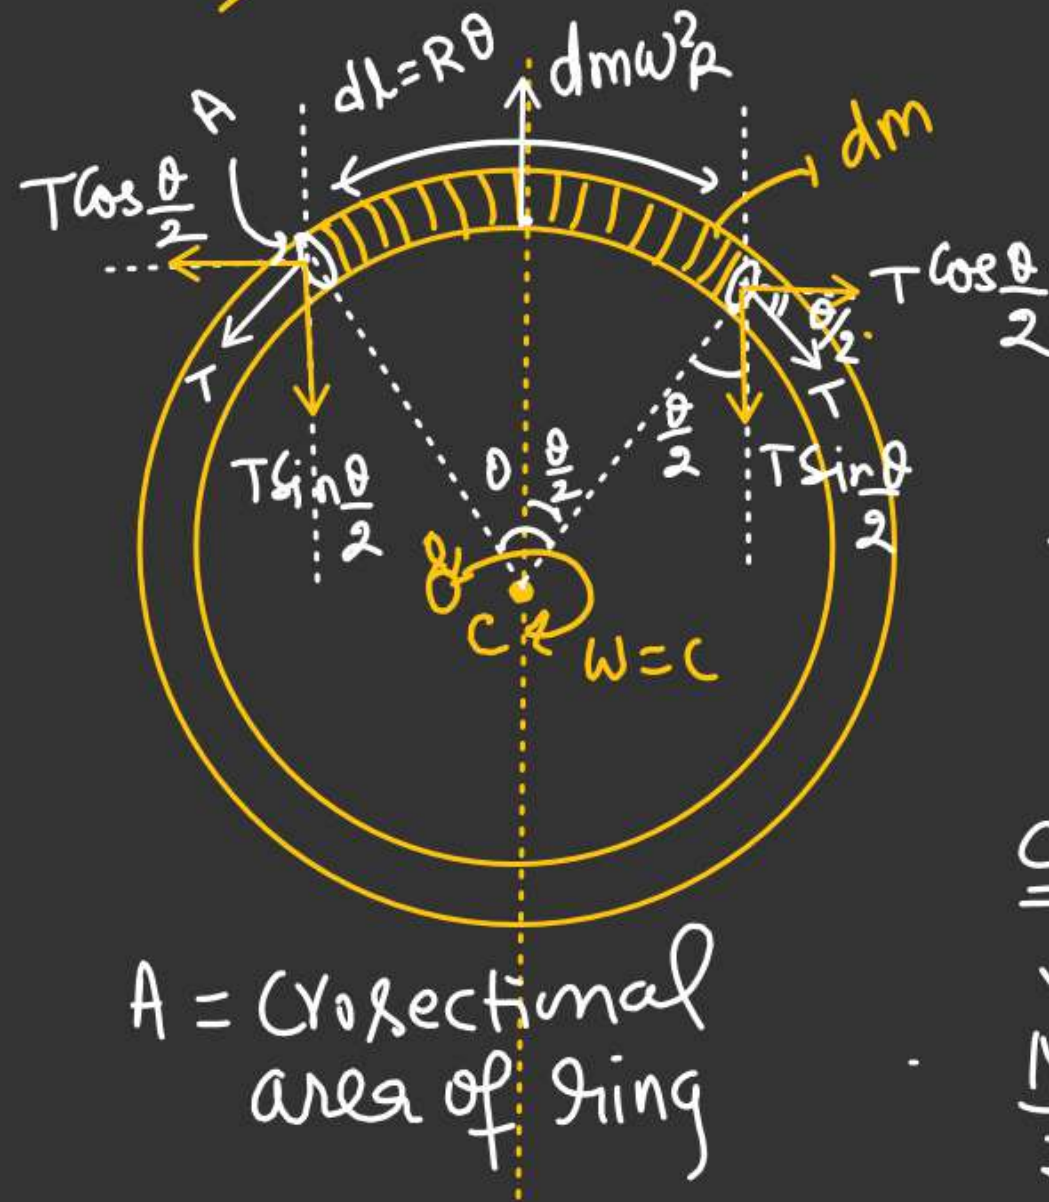 dl=Rθ
dmω²R
A
dm
T Cos θ/2
T Cos θ/2
θ/2
T
T
T Sin θ/2
θ
θ/2
θ/2
T Sin θ/2
C
W = C
A = Crossectional
area of ring